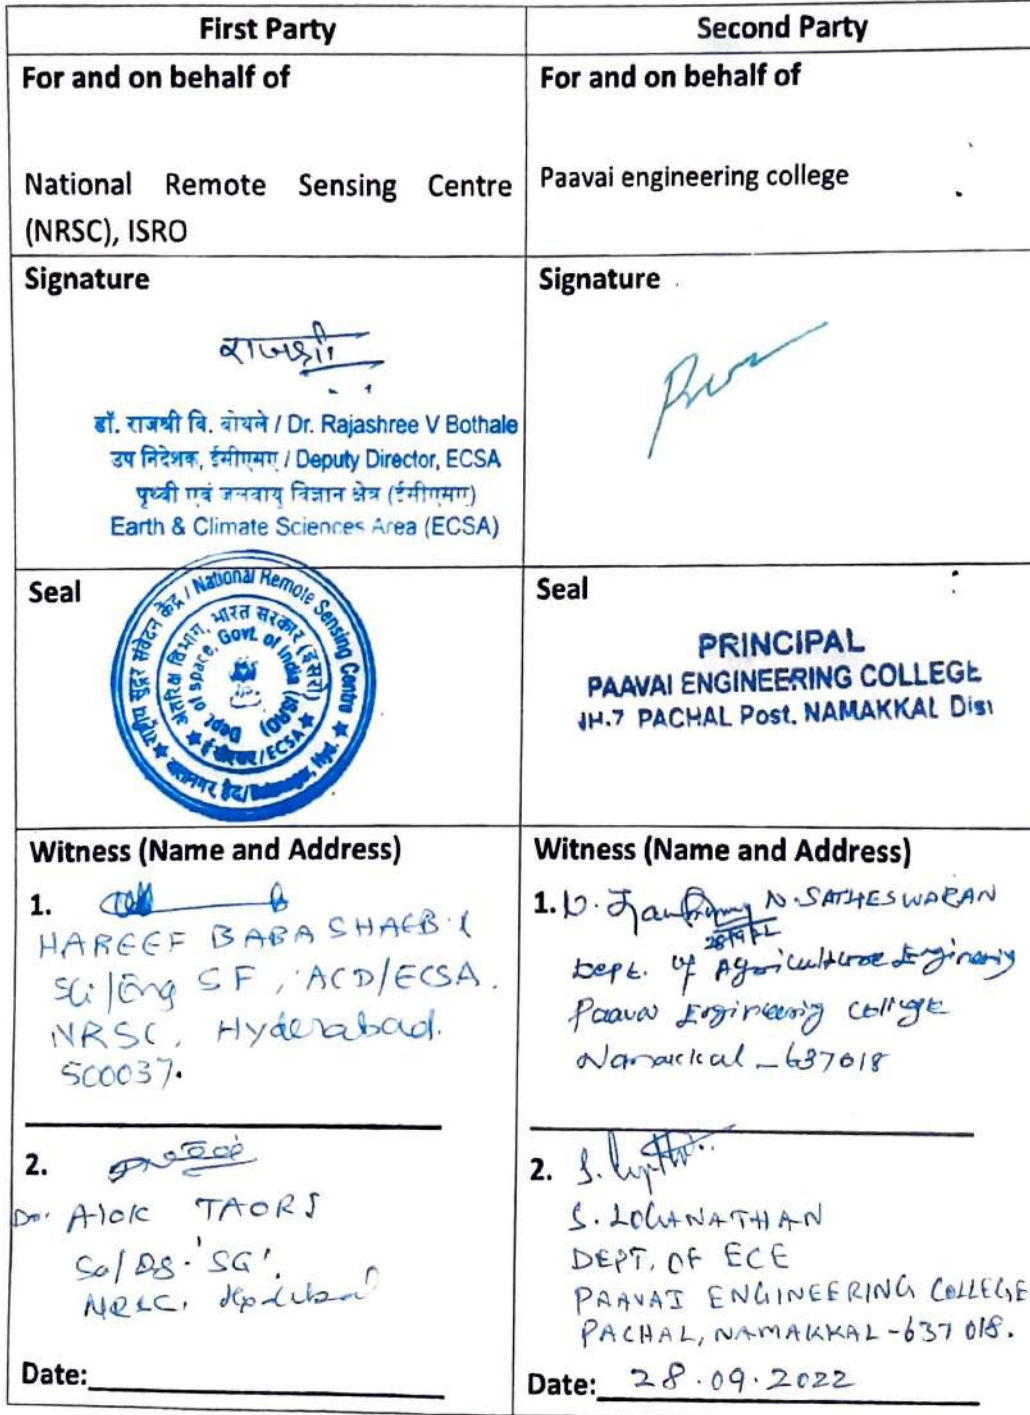 First Party
Second Party
For and on behalf of
National Remote Sensing Centre
(NRSC), ISRO
For and on behalf of
Paavai engineering college
Signature
राजश्री
डॉ. राजश्री वि. बोथले / Dr. Rajashree V Bothale
उप निदेशक, ईसीएसए / Deputy Director, ECSA
पृथ्वी एवं जलवायु विज्ञान क्षेत्र (ईसीएसए)
Earth & Climate Sciences Area (ECSA)
Signature
Seal
राष्ट्रीय सुदूर संवेदन केंद्र / National Remote Sensing Centre
बालानगर, हैद/Balanagar, Hyd.
अंतरिक्ष विभाग, भारत सरकार (इसरो)
Dept. of space, Govt. of India (ISRO)
ईसीएसए/ECSA
Seal
PRINCIPAL
PAAVAI ENGINEERING COLLEGE
NH.7 PACHAL Post, NAMAKKAL Dist
Witness (Name and Address)
1.
HAREEF BABA SHAEB.K
Sci/Eng SF, ACD/ECSA.
NRSC, Hyderabad.
500037.
2.
Dr. Alok TAORI
'SG',
NRSC,
Date:
Witness (Name and Address)
1. N. SATHESWARAN
Dept. of Agriculture Engineering
Paavai Engineering College
Namakkal - 637018
2.
S. LOGANATHAN
DEPT. OF ECE
PAAVAI ENGINEERING COLLEGE
PACHAL, NAMAKKAL - 637 018.
Date: 28.09.2022